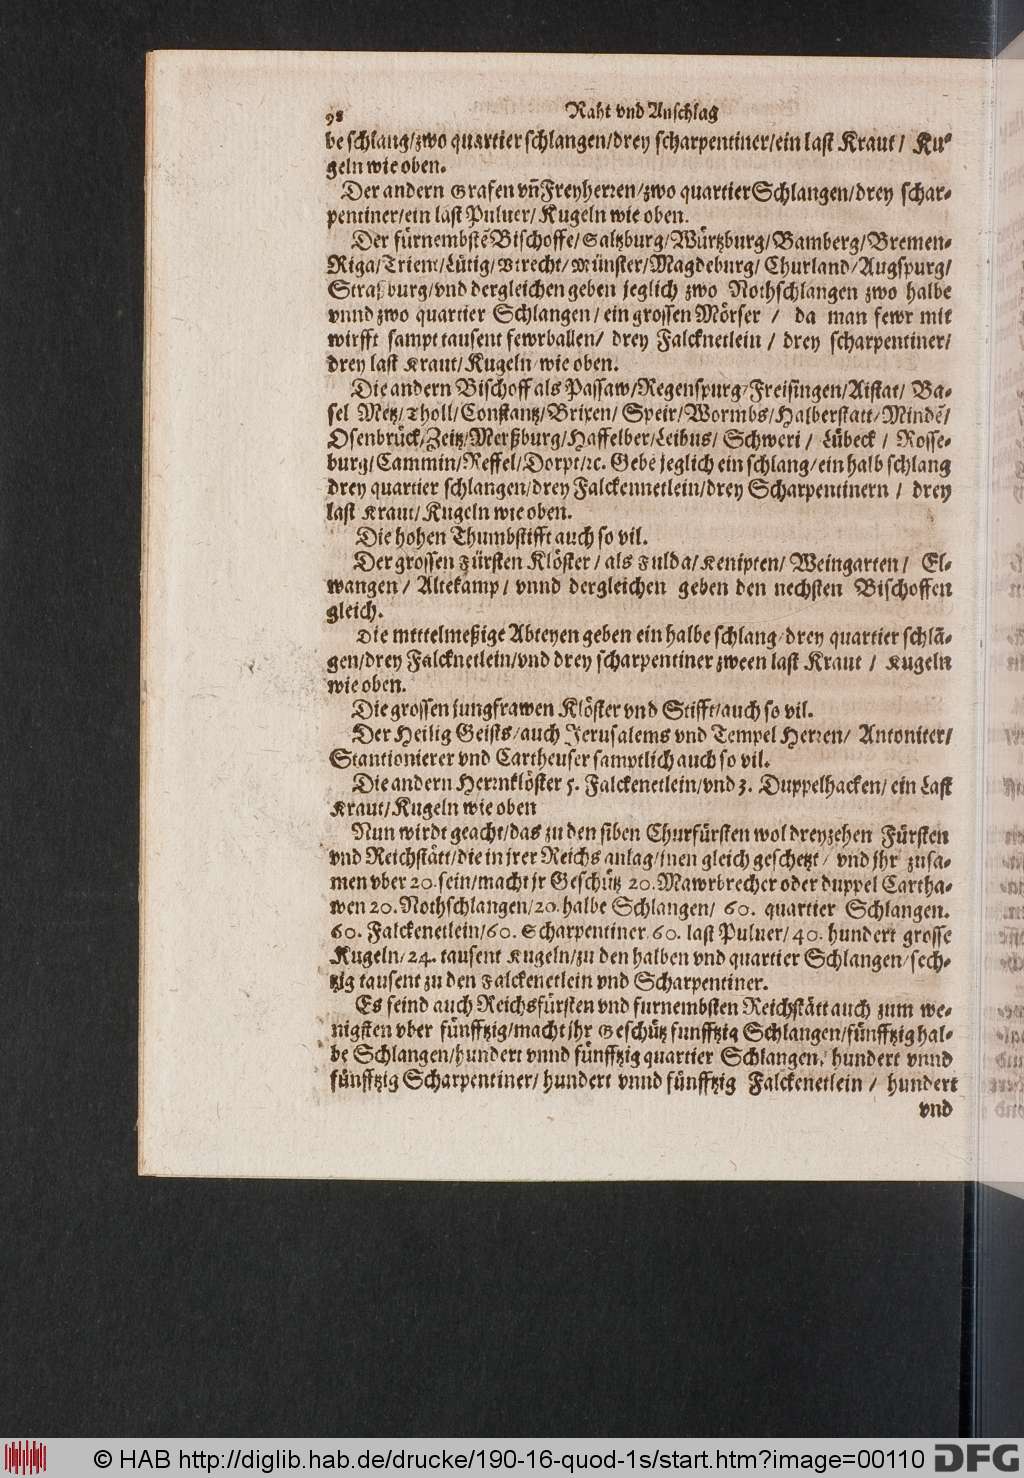 98 Raht vnd Anschlag
be schlang/zwo quartier schlangen/drey scharpentiner/ein last Kraut/ Ku-
geln wie oben.
Der andern Grafen vñ Freyherren/zwo quartier Schlangen/drey schar-
pentiner/ein last Puluer/ Kugeln wie oben.
Der fürnembstẽ Bischoffe/Saltzburg/Würtzburg/Bamberg/Bremen-
Riga/Trient/Lütig/Vtrecht/Münster/Magdeburg/ Churland/Augspurg/
Straßburg/vnd dergleichen geben jeglich zwo Nothschlangen zwo halbe
vnnd zwo quartier Schlangen/ein grossen Mörser / da man fewr mit
wirfft sampt tausent fewrballen/ drey Falcknetlein / drey scharpentiner/
drey last Kraut/Kugeln wie oben.
Die andern Bischoff als Passaw/Regenspurg/Freisingen/Aistat/ Ba-
sel Metz/Tholl/Constantz/Brixen/ Speir/Wormbs/Halberstatt/Mindẽ/
Osenbrück/Zeitz/Merßburg/Haffelber/Leibus/ Schweri / Lübeck / Rosse-
burg/Cammin/Reffel/Dorpt/ꝛc. Gebẽ jeglich ein schlang/ein halb schlang
drey quartier schlangen/drey Falckennetlein/drey Scharpentinern / drey
last Kraut/Kugeln wie oben.
Die hohen Thumbstifft auch so vil.
Der grossen Fürsten Klöster/als Fulda/Kenipten/ Weingarten/ El-
wangen / Altekamp/ vnnd dergleichen geben den nechsten Bischoffen
gleich.
Die mittelmeßige Abteyen geben ein halbe schlang/drey quartier schlã-
gen/drey Falcknetlein/vnd drey scharpentiner zween last Kraut / Kugeln
wie oben.
Die grossen jungfrawen Klöster vnd Stifft/auch so vil.
Der Heilig Geists/auch Jerusalems vnd Tempel Herren/ Antoniter/
Stantionierer vnd Cartheuser samptlich auch so vil.
Die andern Herrnklöster 5. Falckenetlein/vnd 3. Duppelhacken/ ein Last
Kraut/Kugeln wie oben
Nun wirdt geacht/das zu den siben Churfürsten wol dreyzehen Fürsten
vnd Reichstätt/die in jrer Reichs anlag/jnen gleich geschetzt/ vnd jhr zusa-
men vber 20. sein/macht jr Geschütz 20. Mawrbrecher oder duppel Cartha-
wen 20. Nothschlangen/20. halbe Schlangen/ 60. quartier Schlangen.
60. Falckenetlein/60. Scharpentiner 60. last Puluer/40. hundert grosse
Kugeln/24. tausent Kugeln/zu den halben vnd quartier Schlangen/sech-
tzig tausent zu den Falckenetlein vnd Scharpentiner.
Es seind auch Reichsfürsten vnd furnembsten Reichstätt auch zum we-
nigsten vber fünfftzig/macht jhr Geschütz funfftzig Schlangen/fünfftzig hal-
be Schlangen/hundert vnnd fünfftzig quartier Schlangen, hundert vnnd
fünfftzig Scharpentiner/ hundert vnnd fünfftzig Falckenetlein / hundert
vnd
© HAB http://diglib.hab.de/drucke/190-16-quod-1s/start.htm?image=00110 DFG